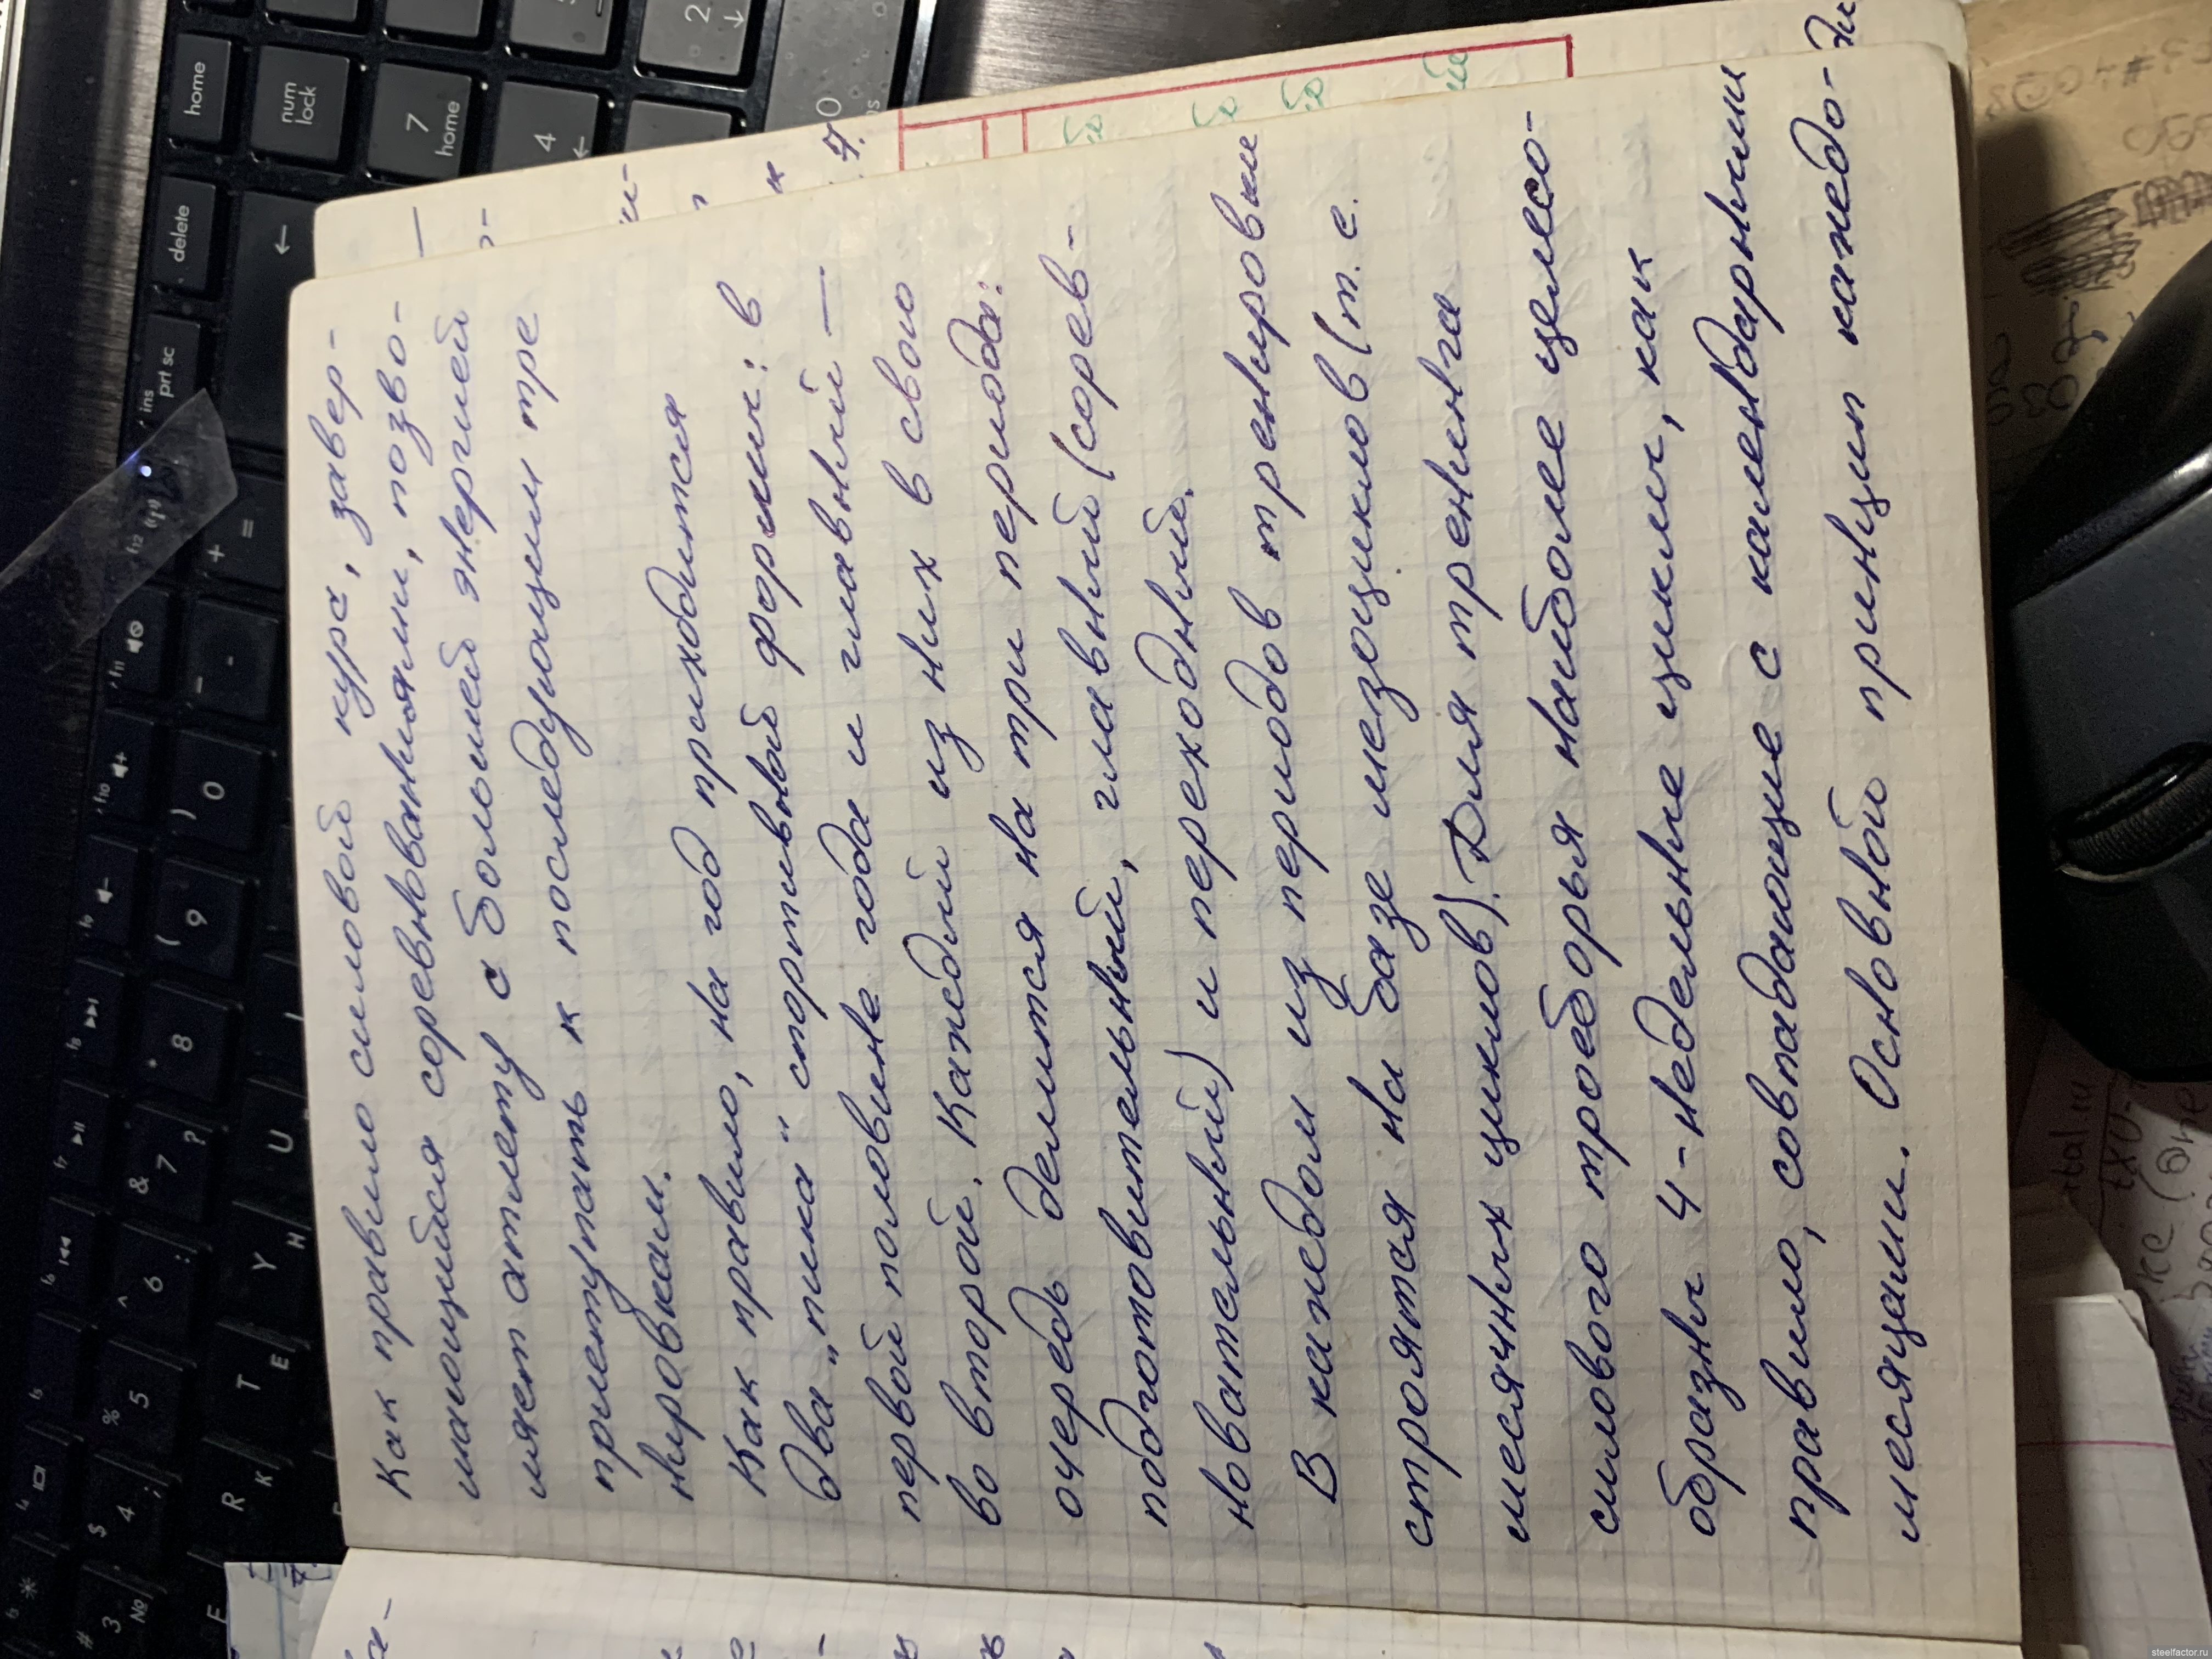 Как правило силовой курс, завер-
шающийся соревнованиями, позво-
ляет атлету с большей энергией
приступать к последующим тре
нировкам.
Как правило, на год приходится
два "пика" спортивной формы: в
первой половине года и главный —
во второй. Каждый из них в свою
очередь делится на три периода:
подготовительный, главный (сорев-
новательный) и переходный.
В каждом из периодов тренировки
строятся на базе мезоциклов (т. е.
месячных циклов). Для тренинга
силового троеборья наиболее целесо-
образны 4-недельные циклы, как
правило, совпадающие с календарными
месяцами. Основной принцип каждо-
home
num
lock
7
home
4
←
2
↓
0
ns
delete
←
ins
prt sc
f12
f11
f10
+
=
-
)
0
(
9
*
8
&
7
?
^
6
:
%
5
$
4
;
#
3
№
U
Y
Н
T
Е
R
К
steelfactor.ru